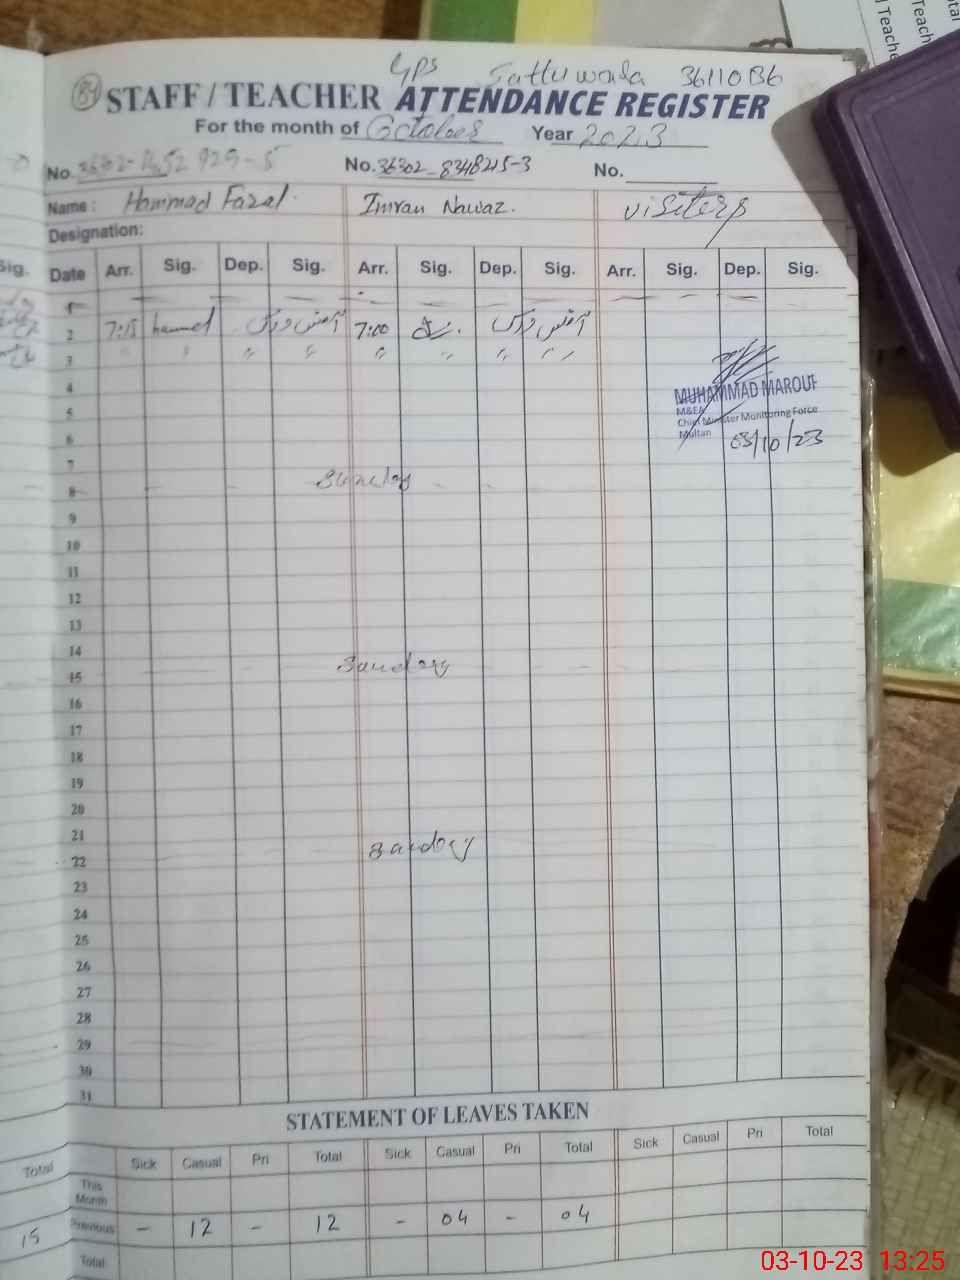 GPS 3611036
84 STAFF / TEACHER ATTENDANCE REGISTER
For the month of October Year 2023
No. No. 36302-8348215-3 No.
Name: Hammad Fazal. Imran Nawaz. visiters
Designation:
Date Arr. Sig. Dep. Sig. Arr. Sig. Dep. Sig. Arr. Sig. Dep. Sig.
1
2 7:15 hammad آفس ورک 7:00 آفس ورک
3 " " " " " " " "
4
MUHAMMAD MAROUF
5
M&EA
Chief Minister Monitoring Force
6
Multan 03/10/23
7
8 Sunday
9
10
11
12
13
14
15 Sunday
16
17
18
19
20
21
22 Sunday
23
24
25
26
27
28
29
30
31
STATEMENT OF LEAVES TAKEN
Sick Casual Pri Total Sick Casual Pri Total Sick Casual Pri Total
This Month
Previous - 12 - 12 - 04 - 04
Total
Sig.
Total
15
Teache
Teach
03-10-23 13:25